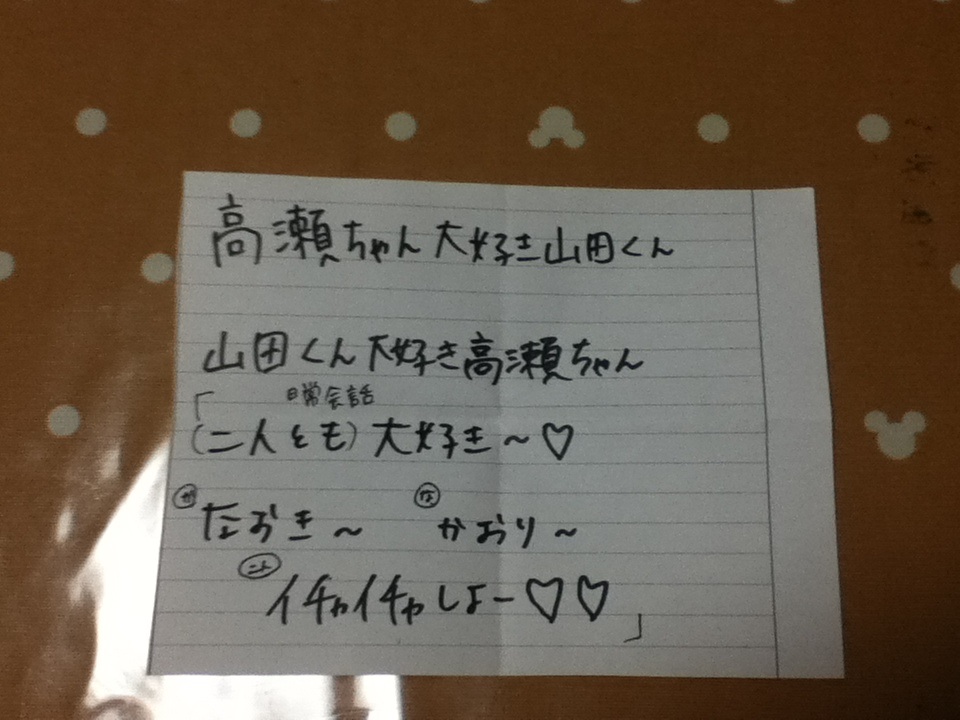 高瀬ちゃん大好き山田くん
山田くん大好き高瀬ちゃん
「 日常会話
(二人とも)大好き～♡
か なおき～ な かおり～
二人 イチャイチャしよー♡♡」